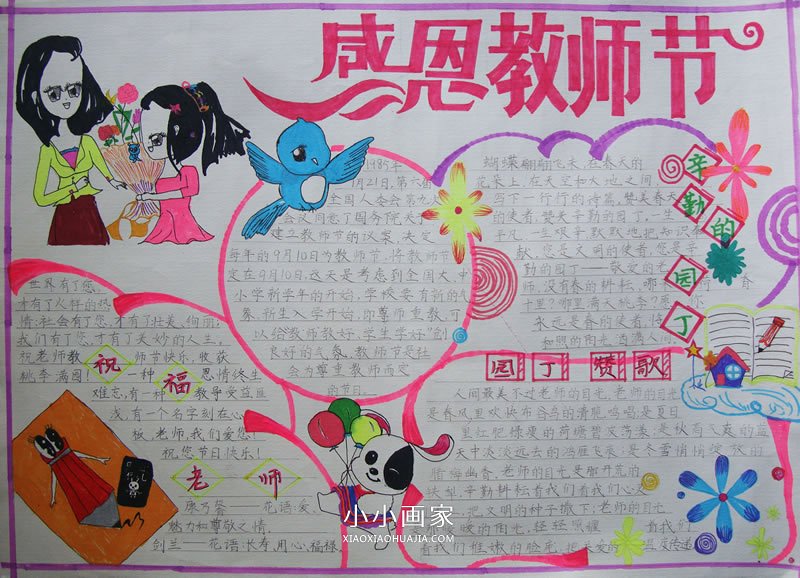 感恩教师节
1985年
1月21日,第六届
全国人大常委会第九次
会议同意了国务院关于
建立教师节的议案,决定
每年的9月10日为教师节,将教师节
定在9月10日,这天是考虑到全国大、中
小学新学年的开始,学校要有新的气
象,新生入学开始,即尊师重教,可
以给教师教好、学生学好"创
良好的气氛,教师节是社
会为尊重教师而定
的节日。
蝴蝶翩翩飞来,在春天的
花朵上,在天空和大地之间,
写下一行行的诗篇,赞美春天
的使者,赞美辛勤的园丁,一生
平凡,一生艰辛,默默地把知识
献,您是文明的使者,您是辛
勤的园丁——敬爱的老
师,没有春的耕耘,哪
十里?哪里满天桃李?
永远是春的使者,
和煦的阳光,洒满人间
辛勤的园丁
世界有了您,
才有了人好的热
情;社会有了您,才有了壮美、绚丽;
我们有了您,才有了美妙的人生,
祝老师教师节快乐,收获
桃李满园!一种恩情终生
难忘,有一种教导受益匪
浅,有一个名字刻在心
板,老师,我们爱您!
祝您节日快乐!
祝福老师
康乃馨——花语:爱、
魅力和尊敬之情,
剑兰——花语:长寿,用心,福禄,
园丁赞歌
人间最美不过老师的目光,老师的目光
是春风里欢快布谷鸟的清脆鸣唱;是夏日
里红肥绿瘦的荷塘碧波荡漾;是秋高气爽的蓝
天中淡淡远去的鸿雁飞来;是冬雪悄悄绽放的
腊梅幽香,老师的目光是那开荒的
犁,辛勤耕耘着我们
把文明的种子撒下;老师的目光
暖的阳光,轻轻照耀着我们
看我们
小小画家
XIAOXIAOHUAJIA.COM